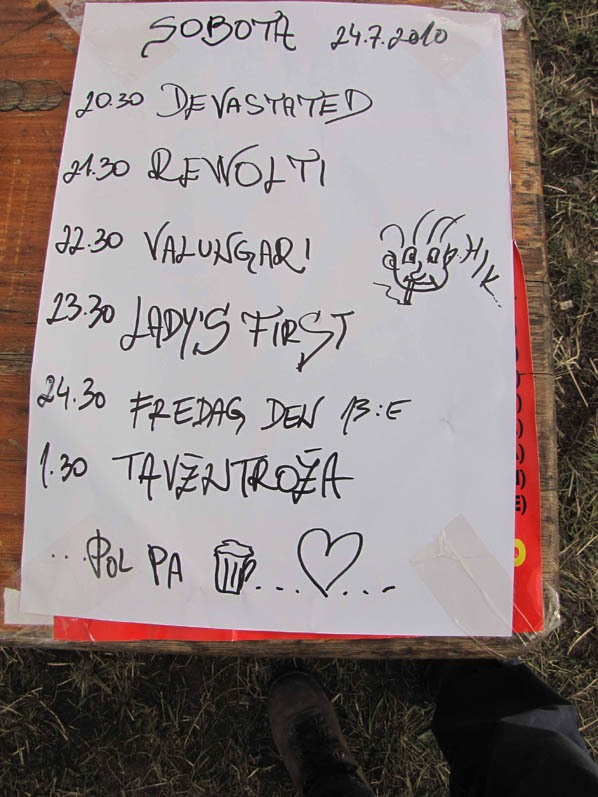 SOBOTA 24.7.2010
20.30 DEVASTATED
21.30 REWOLTI
22.30 VALUNGARI
HIK..
23.30 LADY'S FIRST
24.30 FREDAG DEN 13:E
1.30 TAVŽNTROŽA
...POL PA .... ...